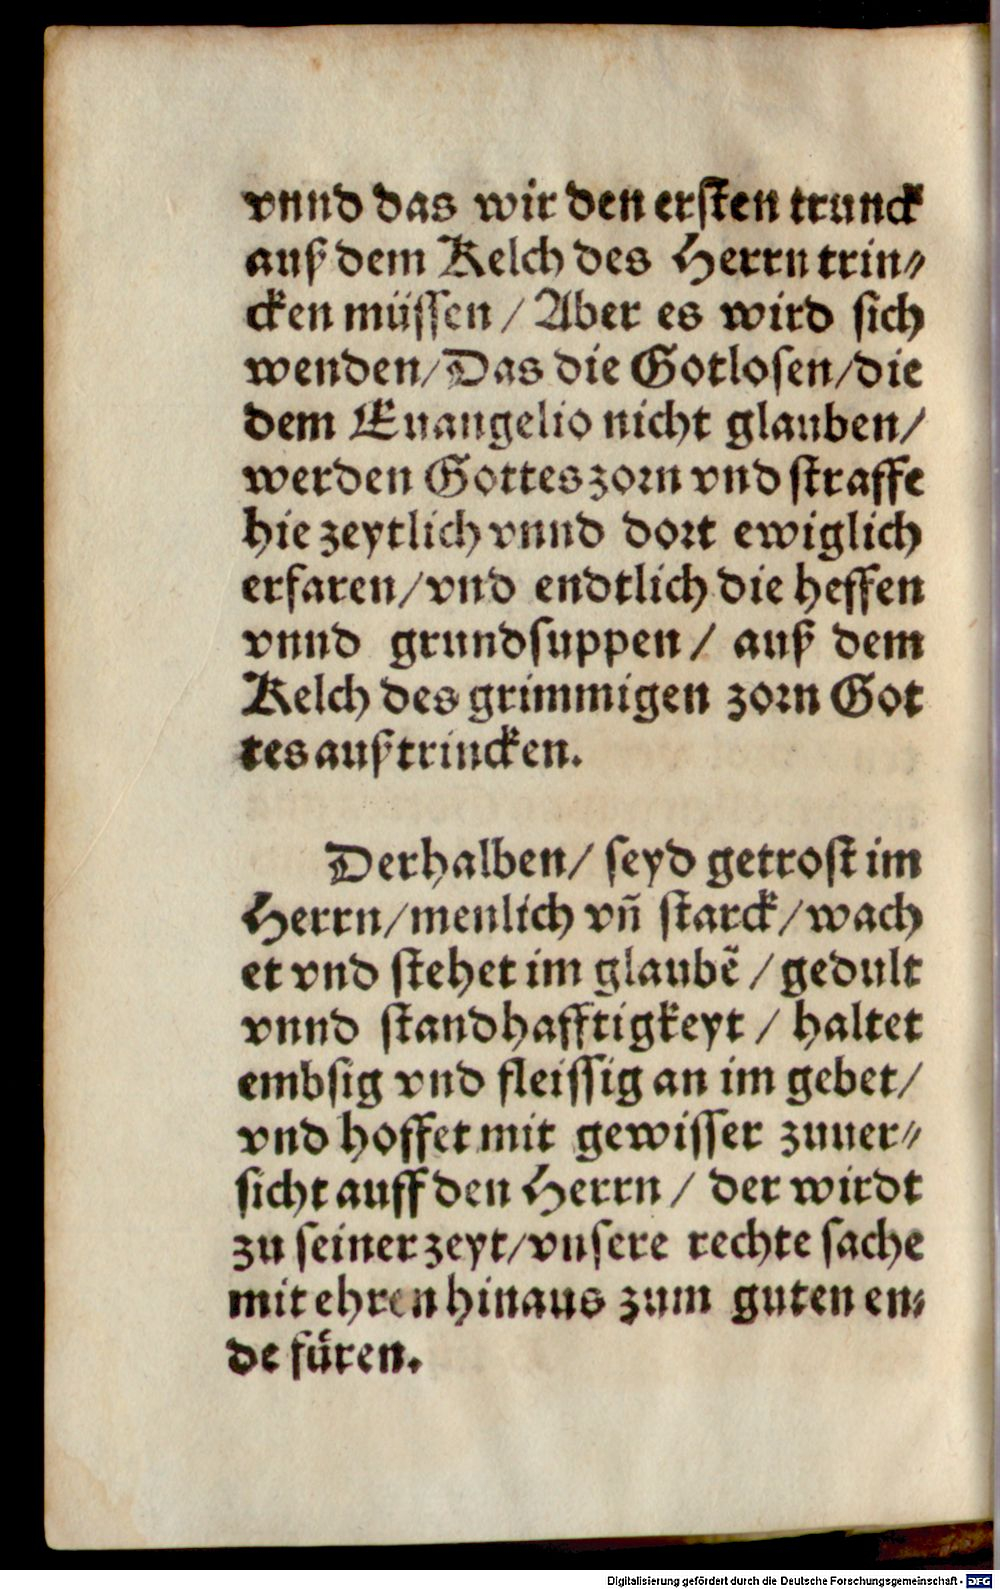 vnnd das wir den ersten trunck
auß dem Kelch des Herrn trin⸗
cken müssen / Aber es wird sich
wenden / Das die Gotlosen / die
dem Euangelio nicht glauben /
werden Gottes zorn vnd straffe
hie zeytlich vnnd dort ewiglich
erfaren / vnd endtlich die heffen
vnnd grundsuppen / auß dem
Kelch des grimmigen zorn Got
tes außtrincken.
Derhalben / seyd getrost im
Herrn / menlich vñ starck / wach
et vnd stehet im glaubẽ / gedult
vnnd standhafftigkeyt / haltet
embsig vnd fleissig an im gebet /
vnd hoffet mit gewisser zuuer⸗
sicht auff den Herrn / der wirdt
zu seiner zeyt / vnsere rechte sache
mit ehren hinaus zum guten en⸗
de füren.
Digitalisierung gefördert durch die Deutsche Forschungsgemeinschaft - DFG